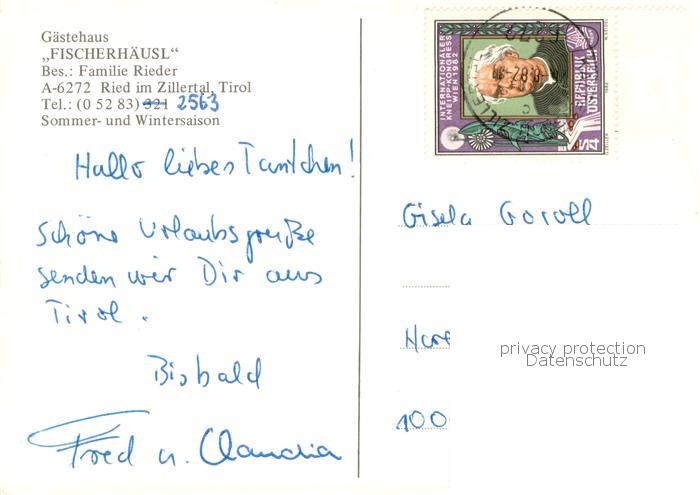 Gästehaus
„FISCHERHÄUSL“
Bes.: Familie Rieder
A-6272 Ried im Zillertal, Tirol
Tel.: (0 52 83) 321 2563
Sommer- und Wintersaison
Hallo liebes Tantchen!
Schöne Urlaubsgrüße
senden wir Dir aus
Tirol.
Bisbald
Fred u. Claudia
INTERNATIONALER
KNEIPP-KONGRESS
WIEN 1982
REPUBLIK
ÖSTERREICH
S4
Gisela Goroll
privacy protection
Datenschutz
100